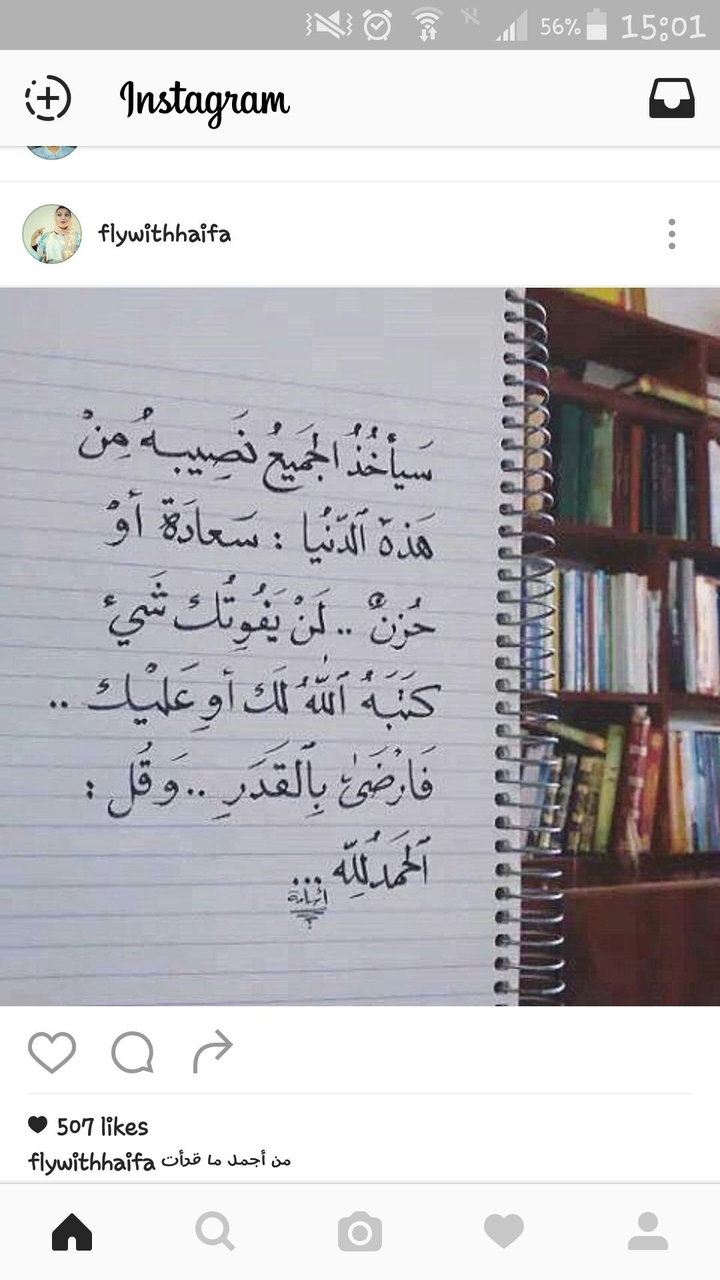 56% 15:01
Instagram
flywithhaifa
سَيأخُذُ الجَميعُ نَصِيبهُ مِنْ
هَذهَ الدّنُيا : سَعادَة أوْ
حُزنٌ .. لَنْ يَفُوتُك شَيء
كَتَبهُ اللّٰهُ لَك أو عَليْك ..
فَارْضَىٰ بِالقَدَرِ .. وَقُل :
الحَمدُللِّه ...
507 likes
flywithhaifa من أجمل ما قرأت